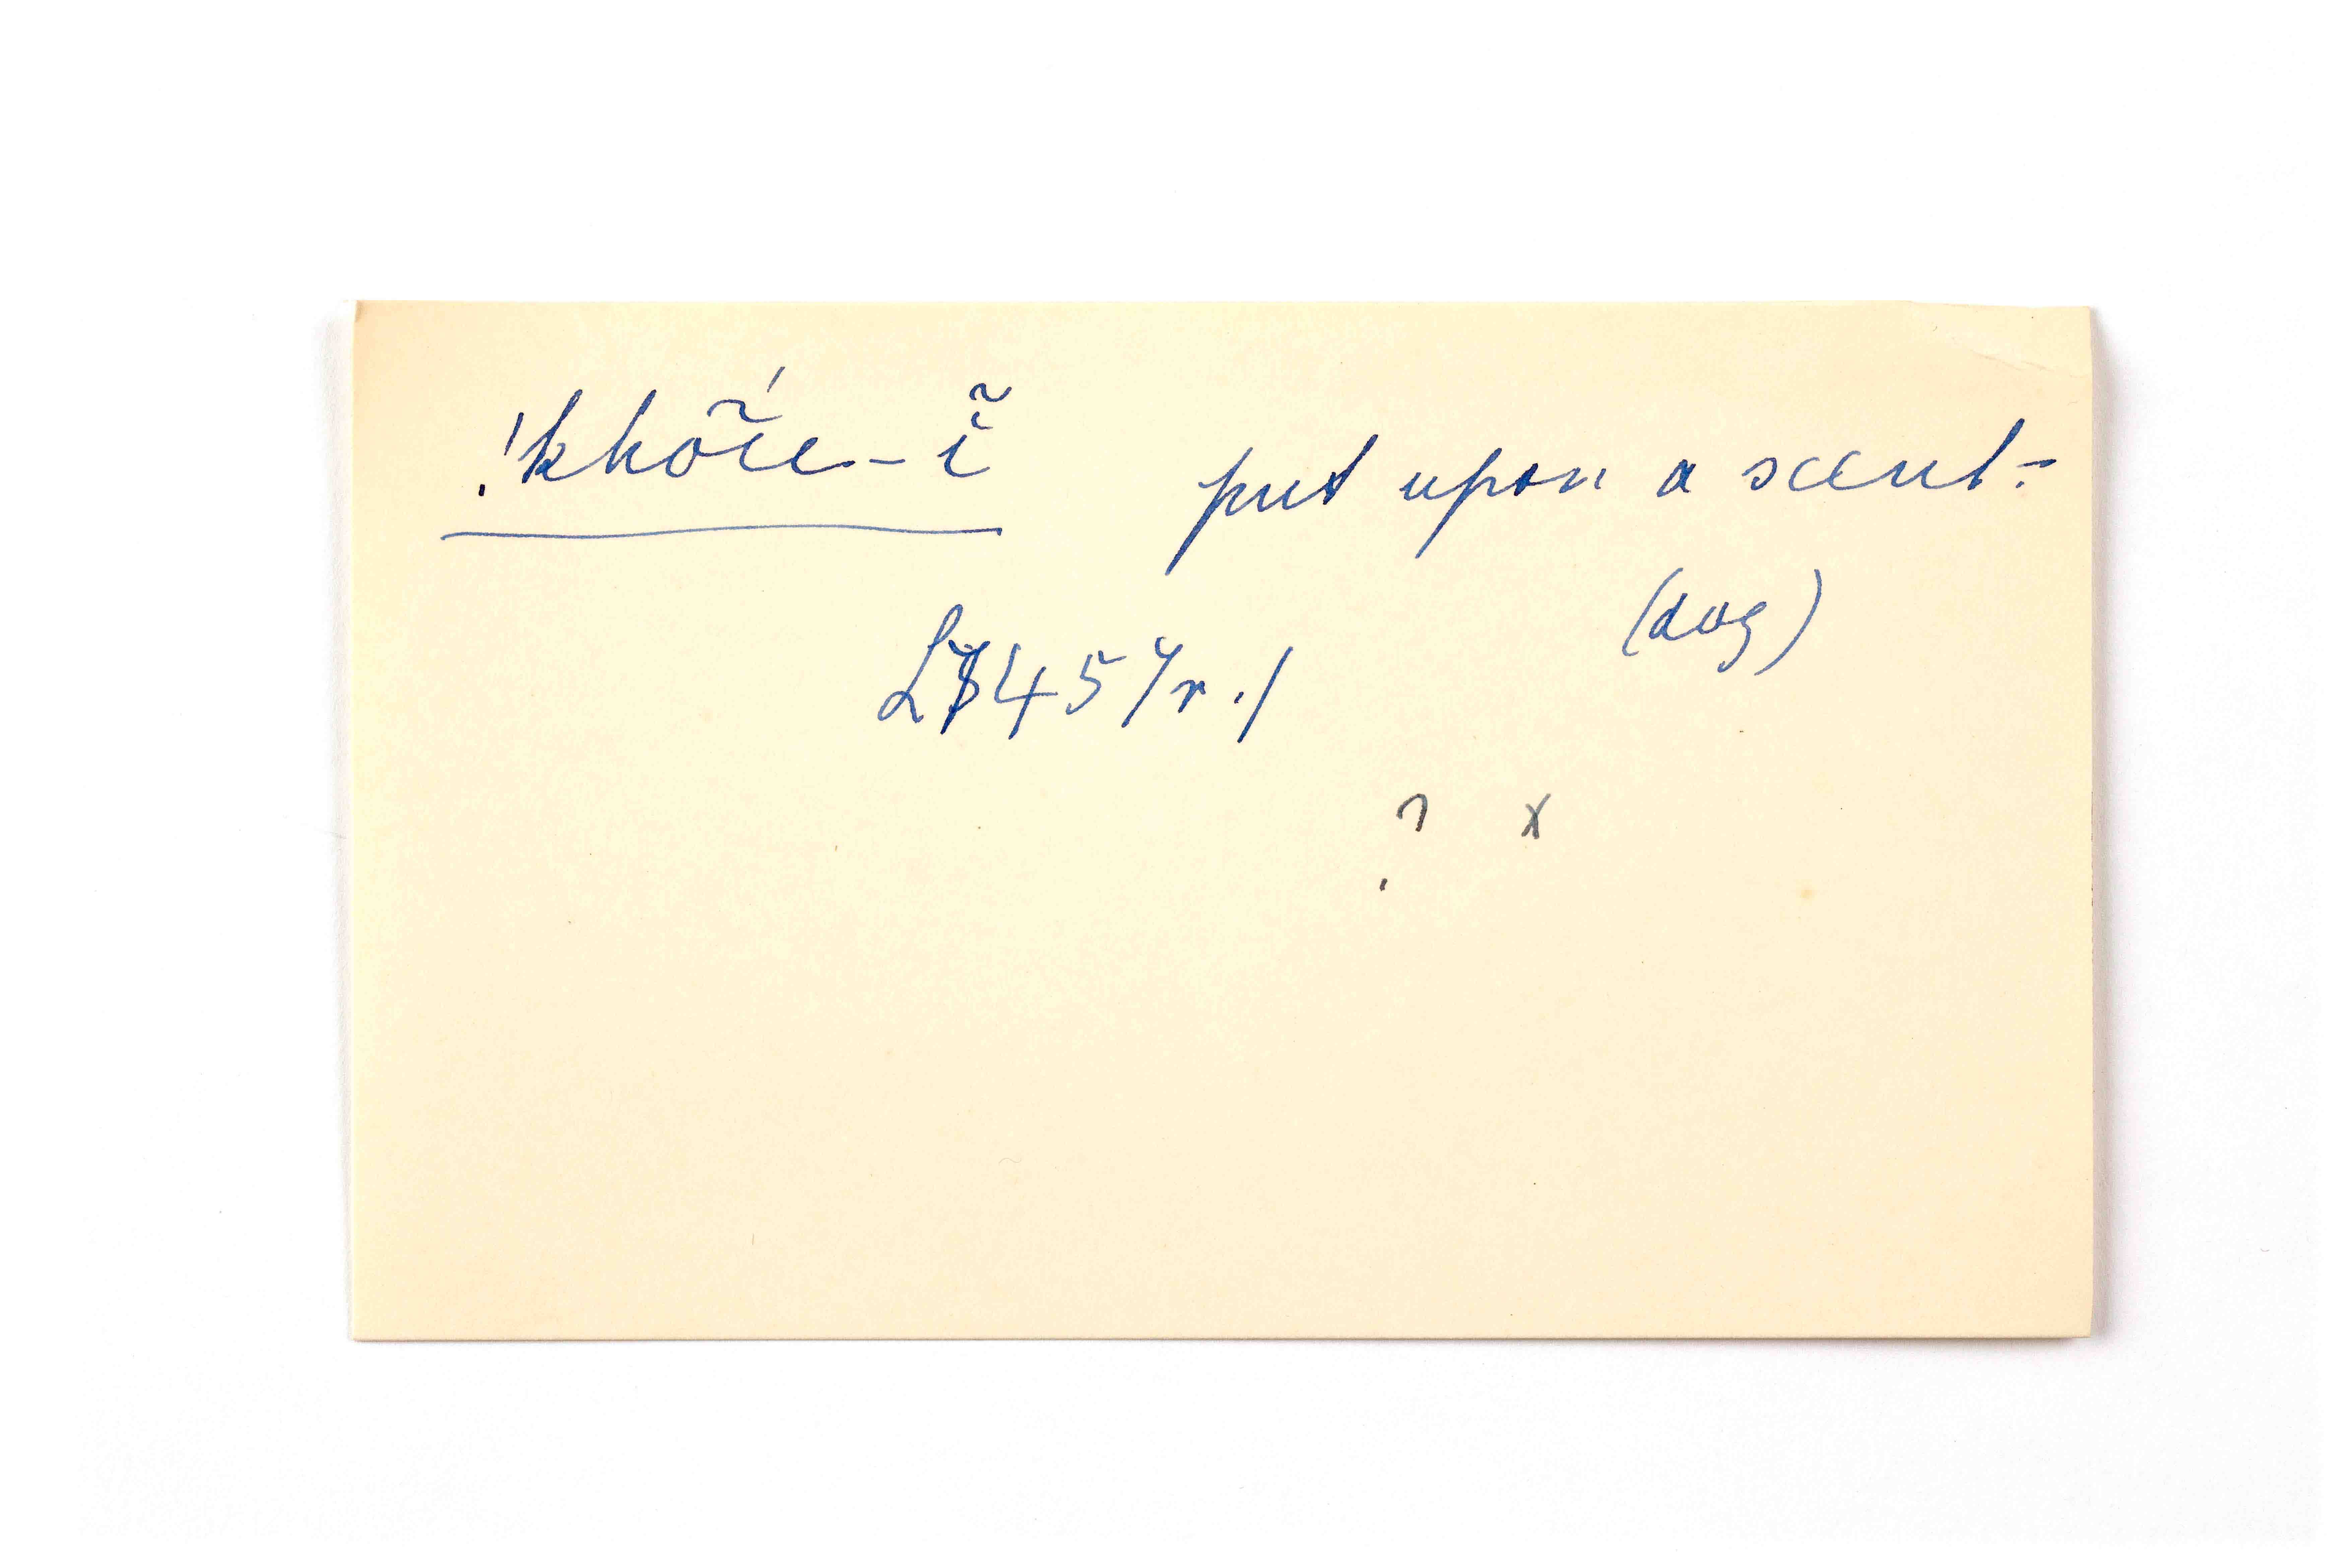 !khõíe-ĩ put upon a scent-
(dog)
L8457r./
? x